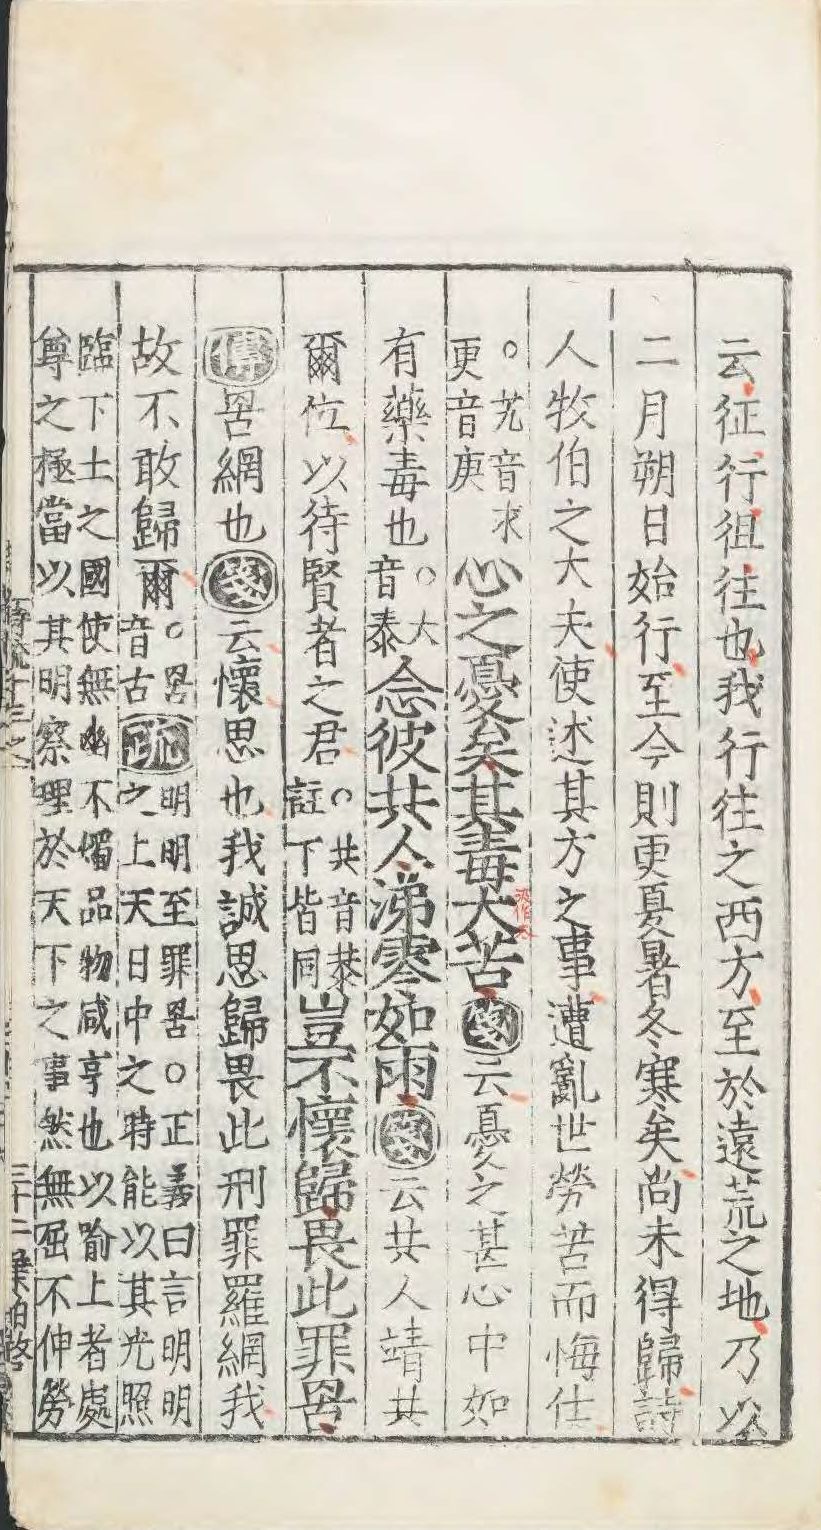 云征行徂往也我行往之西方至於遠荒之地乃以
二月朔日始行至今則更夏暑冬寒矣尚未得歸詩
人牧伯之大夫使述其方之事遭亂世勞苦而悔仕
。艽音求
更音庚
心之憂矣其毒大苦箋云憂之甚心中如
有藥毒也
。大
音泰
念彼共人涕零如雨箋云共人靖共
爾位以待賢者之君
。共音恭
註下皆同
豈不懷歸畏此罪罟
傳罟網也箋云懷思也我誠思歸畏此刑罪羅網我
故不敢歸爾
。罟
音古
疏
明明至罪罟。正義曰言明明
之上天日中之時能以其光照
臨下土之國使無幽不燭品物咸亨也以喻上者處
尊之極當以其明察理於天下之事然無屈不伸勞
詩疏十三之一
三十二